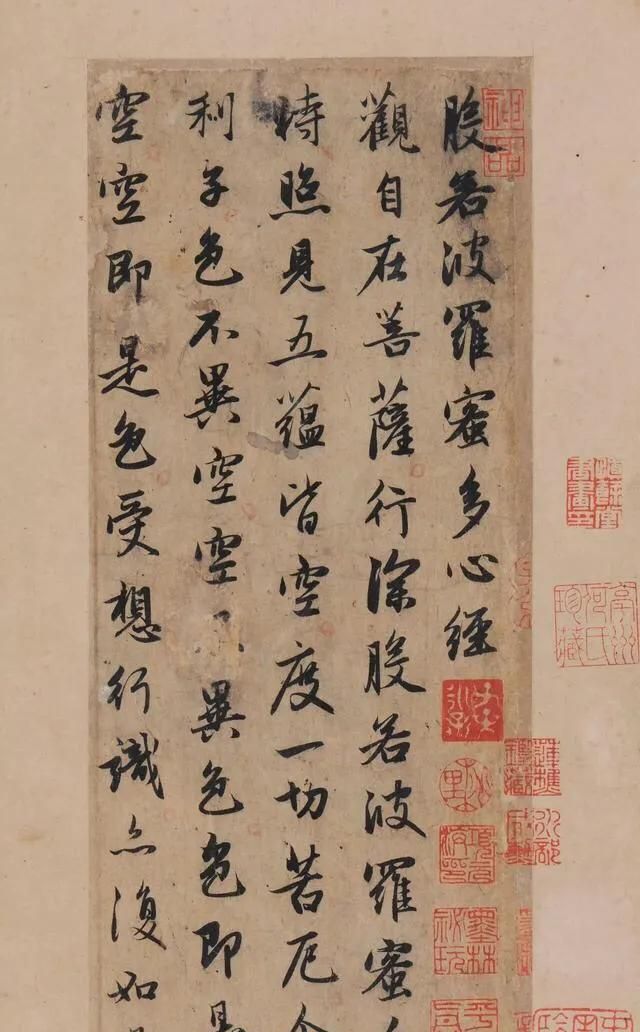 般若波羅蜜多心經
觀自在菩薩行深般若波羅蜜
時照見五蘊皆空度一切苦厄
利子色不異空空不異色色即是
空空即是色受想行識亦復如
神品
墨林祕玩